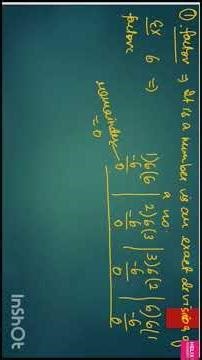 ① factor ⇒ It is a number is an exact devision of
a no.
Ex 6 ⇒ 1)6(6 | 2)6(3 | 3)6(2 | 6)6(1
factors -6 -6 -6 -6
remainder = 0 0 0 0 0
InShOt